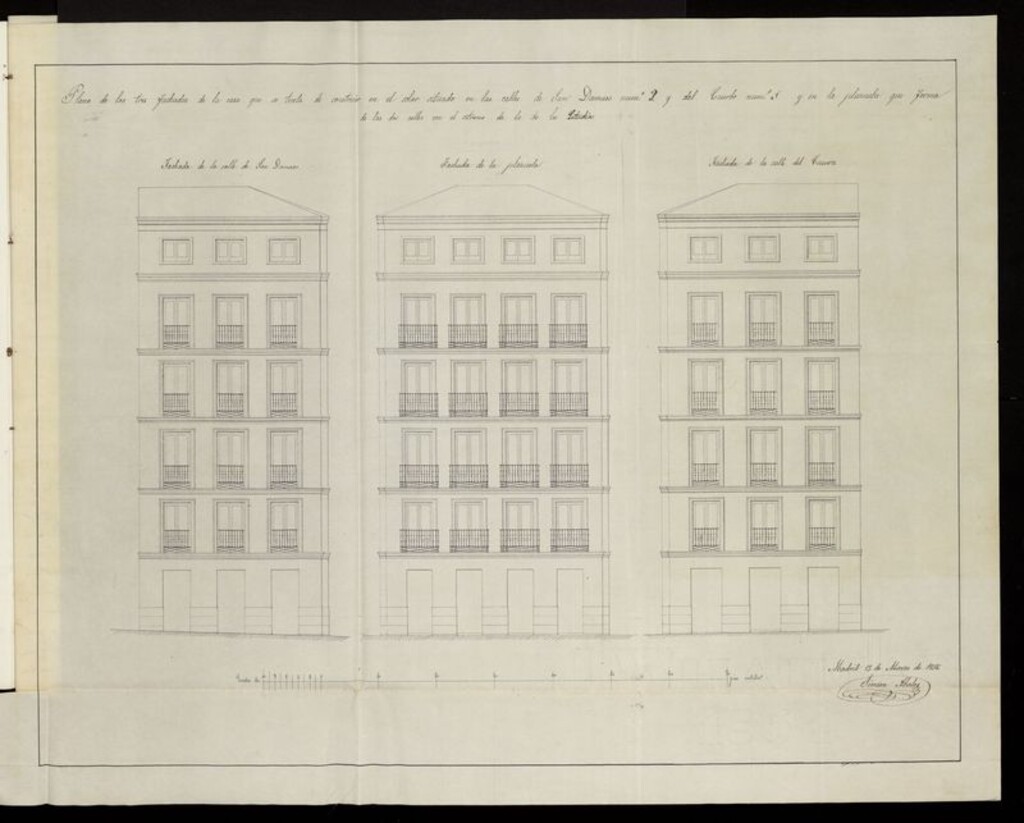 Plano de las tres fachadas de la casa que se trata de construir en el solar situado en las calles de San Damaso num.º 2 y del Cuervo num.º 5 y en la plazuela que forma
de las dos calles con el estremo de la de los Estudios
Fachada de la calle de San Damaso
Fachada de la plazuela
Fachada de la calle del Cuervo
Madrid de Marzo de
Simeon
Escala de
pies